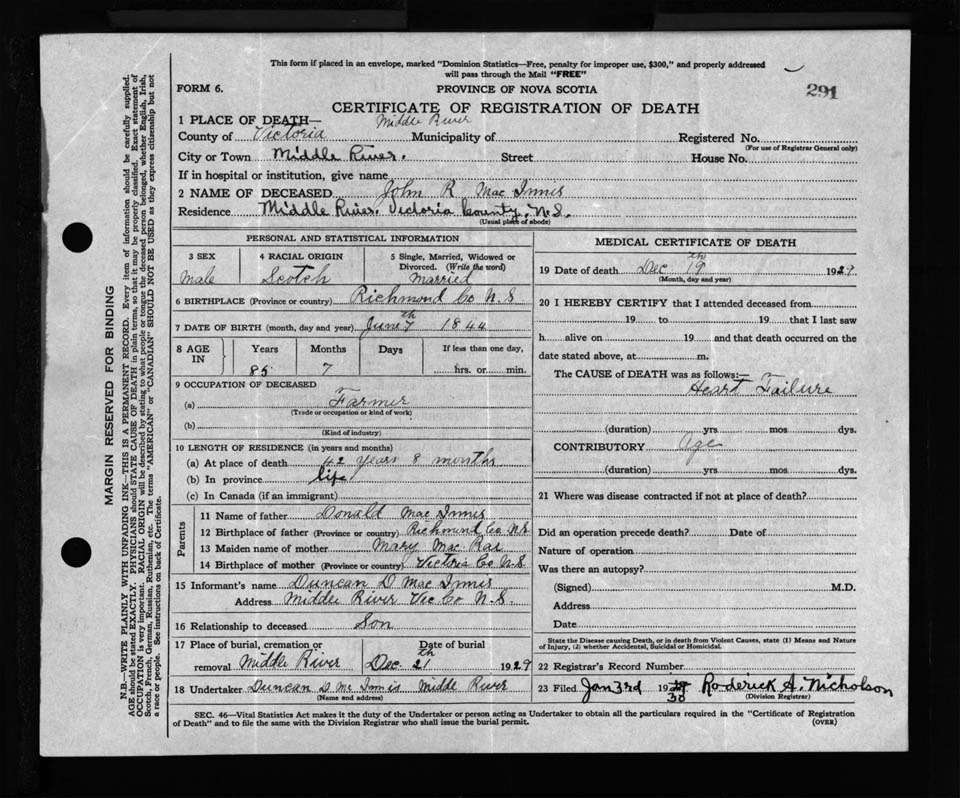 This form if placed in an envelope, marked "Dominion Statistics—Free, penalty for improper use, $300," and properly addressed
will pass through the Mail "FREE"
FORM 6. PROVINCE OF NOVA SCOTIA 291
CERTIFICATE OF REGISTRATION OF DEATH
1 PLACE OF DEATH— Middle River
County of Victoria Municipality of Registered No.
(For use of Registrar General only)
City or Town Middle River. Street House No.
If in hospital or institution, give name
2 NAME OF DECEASED John R Mac Innis
Residence Middle River. Victoria County. N.S.
(Usual place of abode)
PERSONAL AND STATISTICAL INFORMATION
3 SEX 4 RACIAL ORIGIN 5 Single, Married, Widowed or
Divorced. (Write the word)
Male Scotch Married
6 BIRTHPLACE (Province or country) Richmond Co N.S
7 DATE OF BIRTH (month, day and year) June 7th 1844
8 AGE IN Years Months Days If less than one day,
85 7 hrs. or min.
9 OCCUPATION OF DECEASED
(a) Farmer
(Trade or occupation or kind of work)
(b)
(Kind of industry)
10 LENGTH OF RESIDENCE (in years and months)
(a) At place of death 42 years 8 months
(b) In province life
(c) In Canada (if an immigrant)
Parents
11 Name of father Donald Mac Innis
12 Birthplace of father (Province or country) Richmond Co N.S
13 Maiden name of mother Mary Mac Rae
14 Birthplace of mother (Province or country) Victoria Co N.S
15 Informant's name Duncan D Mac Innis
Address Middle River Vic Co N.S.
16 Relationship to deceased Son
17 Place of burial, cremation or Date of burial
removal Middle River Dec. 21th 1929
18 Undertaker Duncan D Mc Innis Middle River
(Name and address)
MEDICAL CERTIFICATE OF DEATH
19 Date of death Dec 19th 1929
(Month, day and year)
20 I HEREBY CERTIFY that I attended deceased from
19 to 19 that I last saw
h alive on 19 and that death occurred on the
date stated above, at m.
The CAUSE of DEATH was as follows:—
Heart Failure
(duration) yrs mos dys.
CONTRIBUTORY Age
(duration) yrs mos dys.
21 Where was disease contracted if not at place of death?
Did an operation precede death? Date of
Nature of operation
Was there an autopsy?
(Signed) M.D.
Address
Date
State the Disease causing Death, or in death from Violent Causes, state (1) Means and Nature
of Injury, (2) whether Accidental, Suicidal or Homicidal.
22 Registrar's Record Number
23 Filed Jan 3rd 1930 Roderick A. Nicholson
(Division Registrar)
SEC. 46—Vital Statistics Act makes it the duty of the Undertaker or person acting as Undertaker to obtain all the particulars required in the "Certificate of Registration
of Death" and to file the same with the Division Registrar who shall issue the burial permit. (OVER)
MARGIN RESERVED FOR BINDING
N.B.—WRITE PLAINLY WITH UNFADING INK—THIS IS A PERMANENT RECORD. Every item of information should be carefully supplied.
AGE should be stated EXACTLY. PHYSICIANS should STATE CAUSE OF DEATH in plain terms, so that it may be properly classified. Exact statement of
OCCUPATION is very important. RACIAL ORIGIN will be described by stating to what people or tongue the deceased person belonged, whether English, Irish,
Scotch, French, German, Russian, Ruthenian, etc. The terms "AMERICAN" or "CANADIAN" SHOULD NOT BE USED as they express citizenship but not
a race or people. See instructions on back of Certificate.